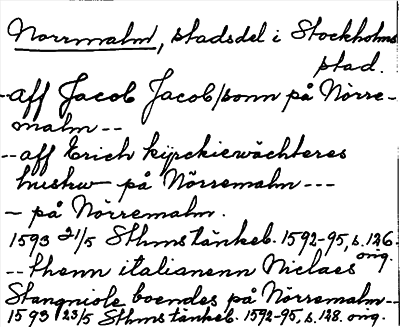 Norrmalm, stadsdel i Stockholms
stad.
-aff Jacob Jacob/sonn på Nörre-
malm --
-- aff Erich kyrckiewächteres
hushw på Nörremalm ---
- på Nörremalm.
1593 21/5 Sthmstänkeb. 1592-95, s. 126
orig.
-- thenn italianenn Niclaes
Stangniole boendes på Nörremalm --
1593 23/5 Sthmstänkeb. 1592-95, s. 128. orig.